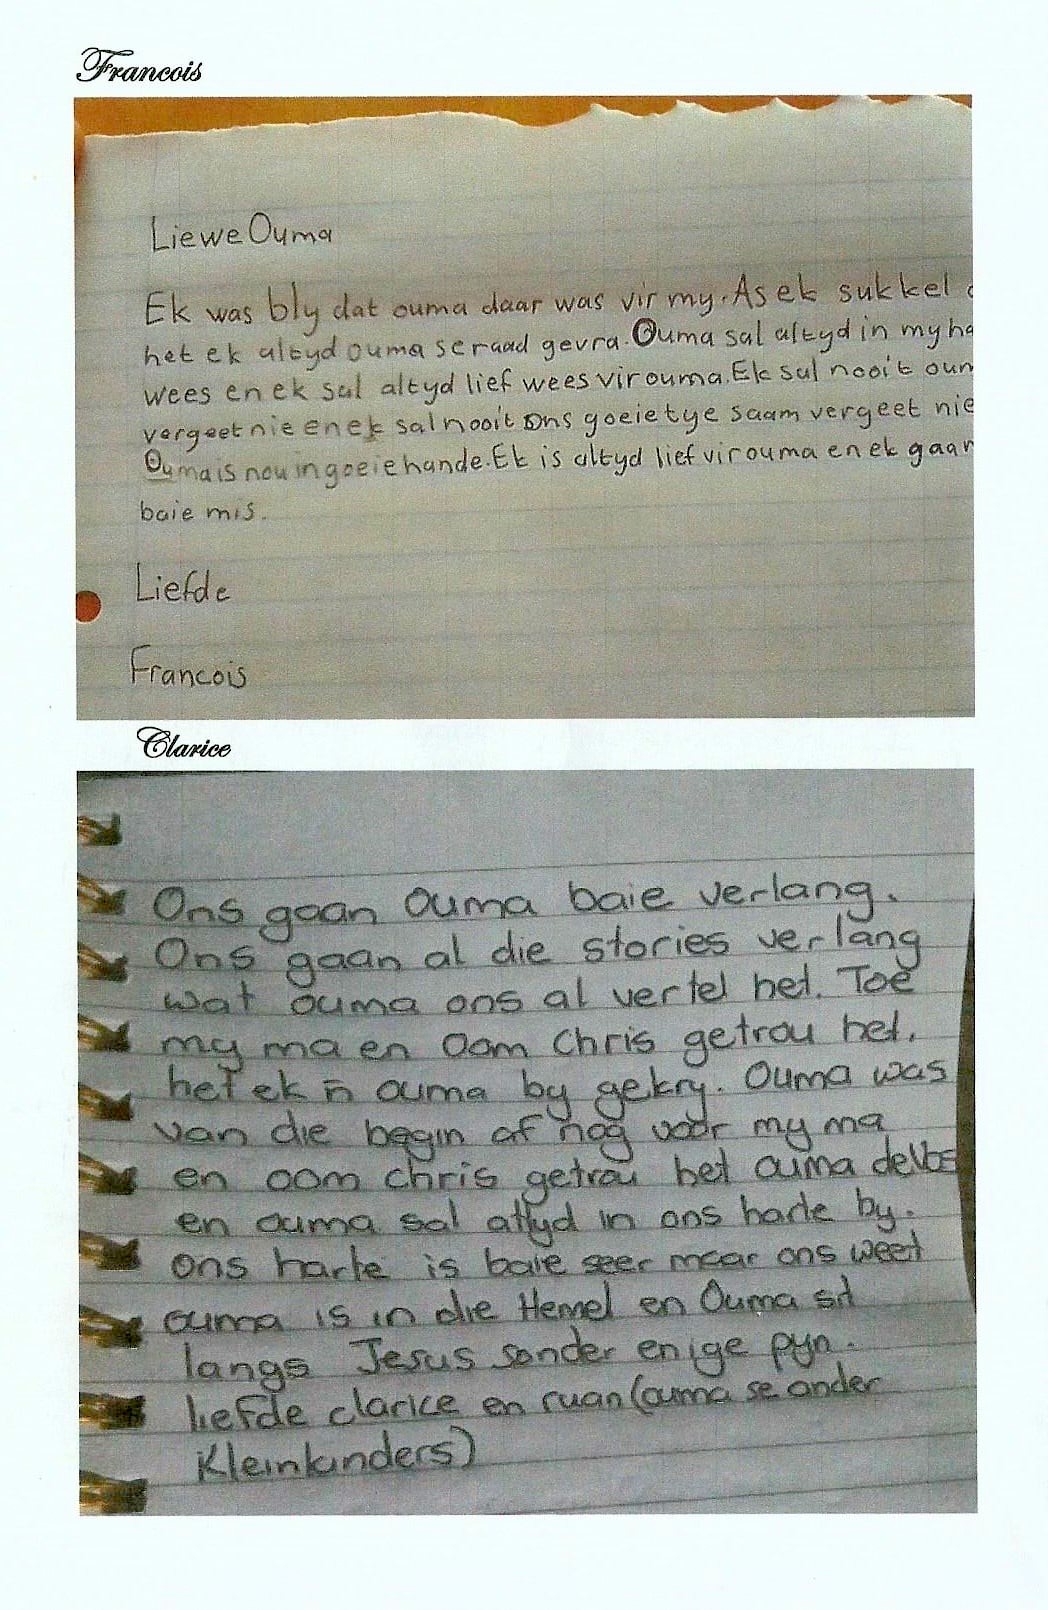 Francois
Liewe Ouma
Ek was bly dat ouma daar was vir my. As ek sukkel
het ek altyd ouma se raad gevra. Ouma sal altyd in my
wees en ek sal altyd lief wees vir ouma. Ek sal nooit
vergeet nie en ek sal nooit ons goeie tye saam vergeet nie
Ouma is nou in goeie hande. Ek is altyd lief vir ouma en ek gaan
baie mis.
Liefde
Francois
Clarice
Ons gaan Ouma baie verlang.
Ons gaan al die stories verlang
wat ouma ons al vertel het. Toe
my ma en oom Chris getrou het.
het ek 'n ouma by gekry. Ouma was
van die begin af nog voor my ma
en oom chris getrou het ouma deVos
en ouma sal altyd in ons harte by.
ons harte is baie seer maar ons weet
ouma is in die Hemel en Ouma sit
langs Jesus sonder enige pyn.
liefde clarice en ruan (ouma se ander
Kleinkinders)